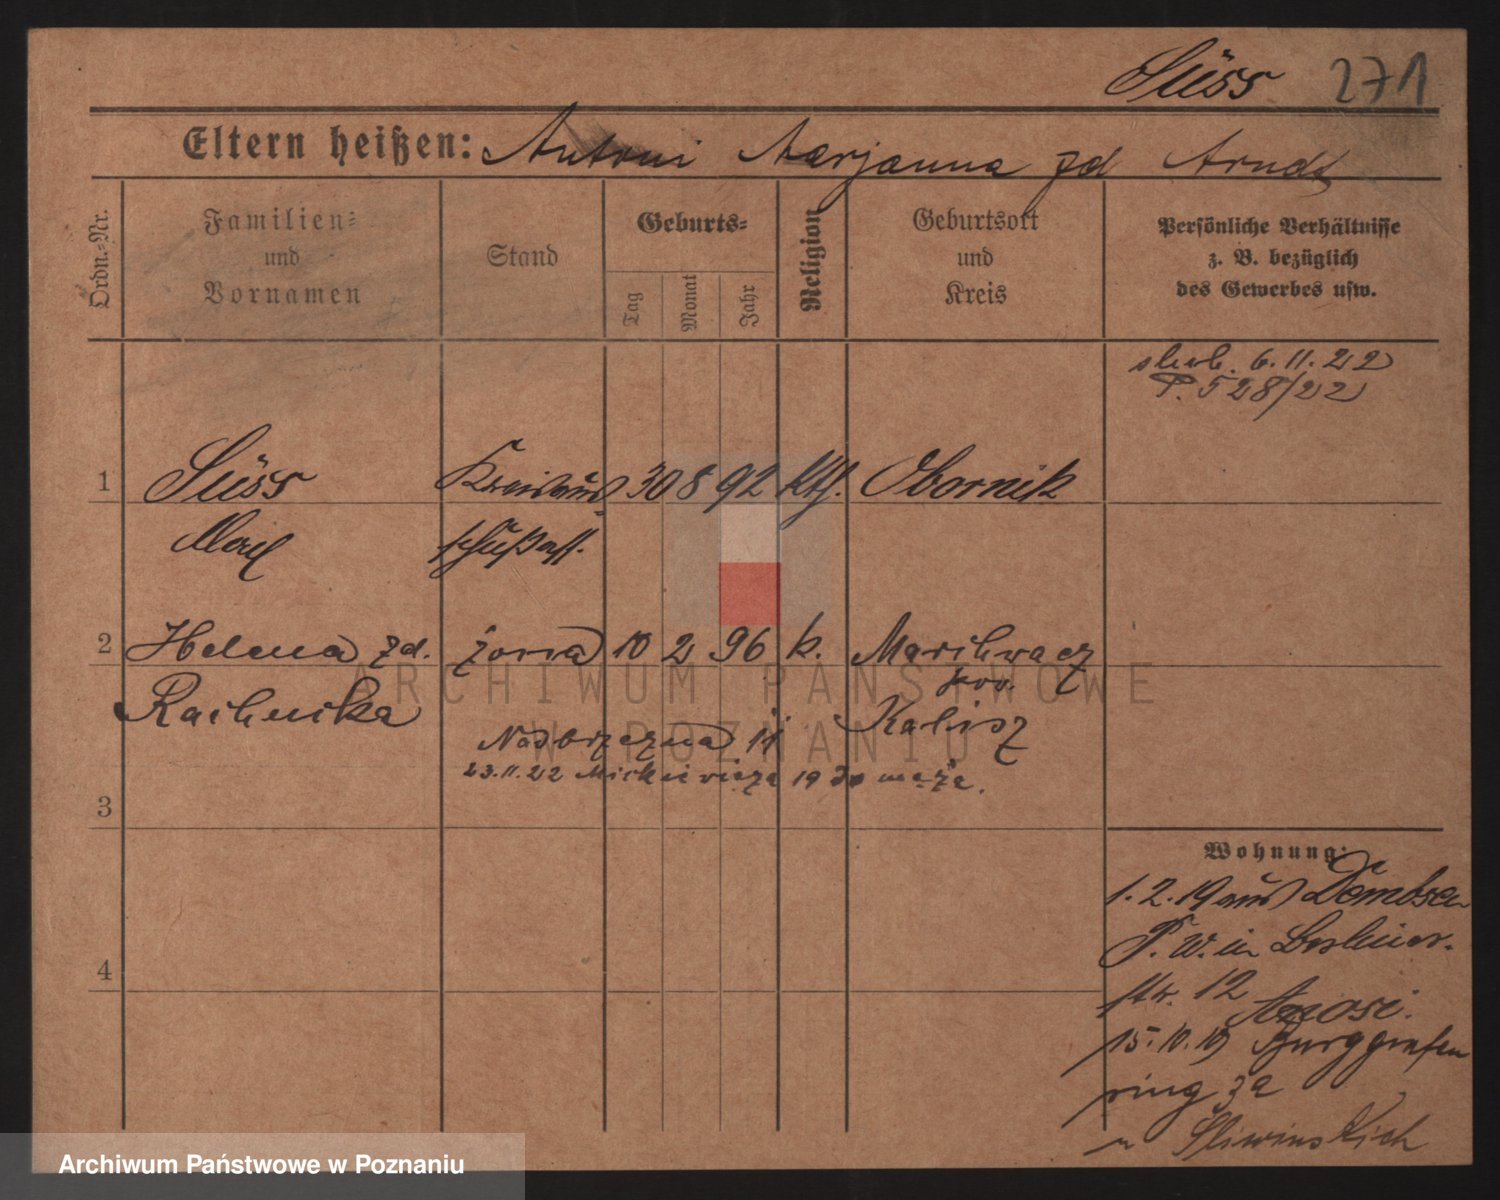 Süss 271
Eltern heißen: Antoni Marjanna zd Arndt
Ordn.-Nr.
Familien-
und
Vornamen
Stand
Geburts-
Tag
Monat
Jahr
Religion
Geburtsort
und
Kreis
Persönliche Verhältnisse
z. B. bezüglich
des Gewerbes usw.
slub. 6.11.22
P. 528/22
1 Süss Kreisaus- 30 8 92 kth. Obornik
Max schußass.
2 Helena zd. żona 10 2 96 k. Marchwacz
pow.
Rachucka Kalisz
Nadbrzeżna 11
23.11.22 Mickiewicza 19 do męża.
3
4
Wohnung:
1.2.19 aus Dembsen
P. W. in Berliner-
str. 12
15.10.19 Burggrafen
ring 3a
Sliwinskich
ARCHIWUM PAŃSTWOWE
W POZNANIU
Archiwum Państwowe w Poznaniu